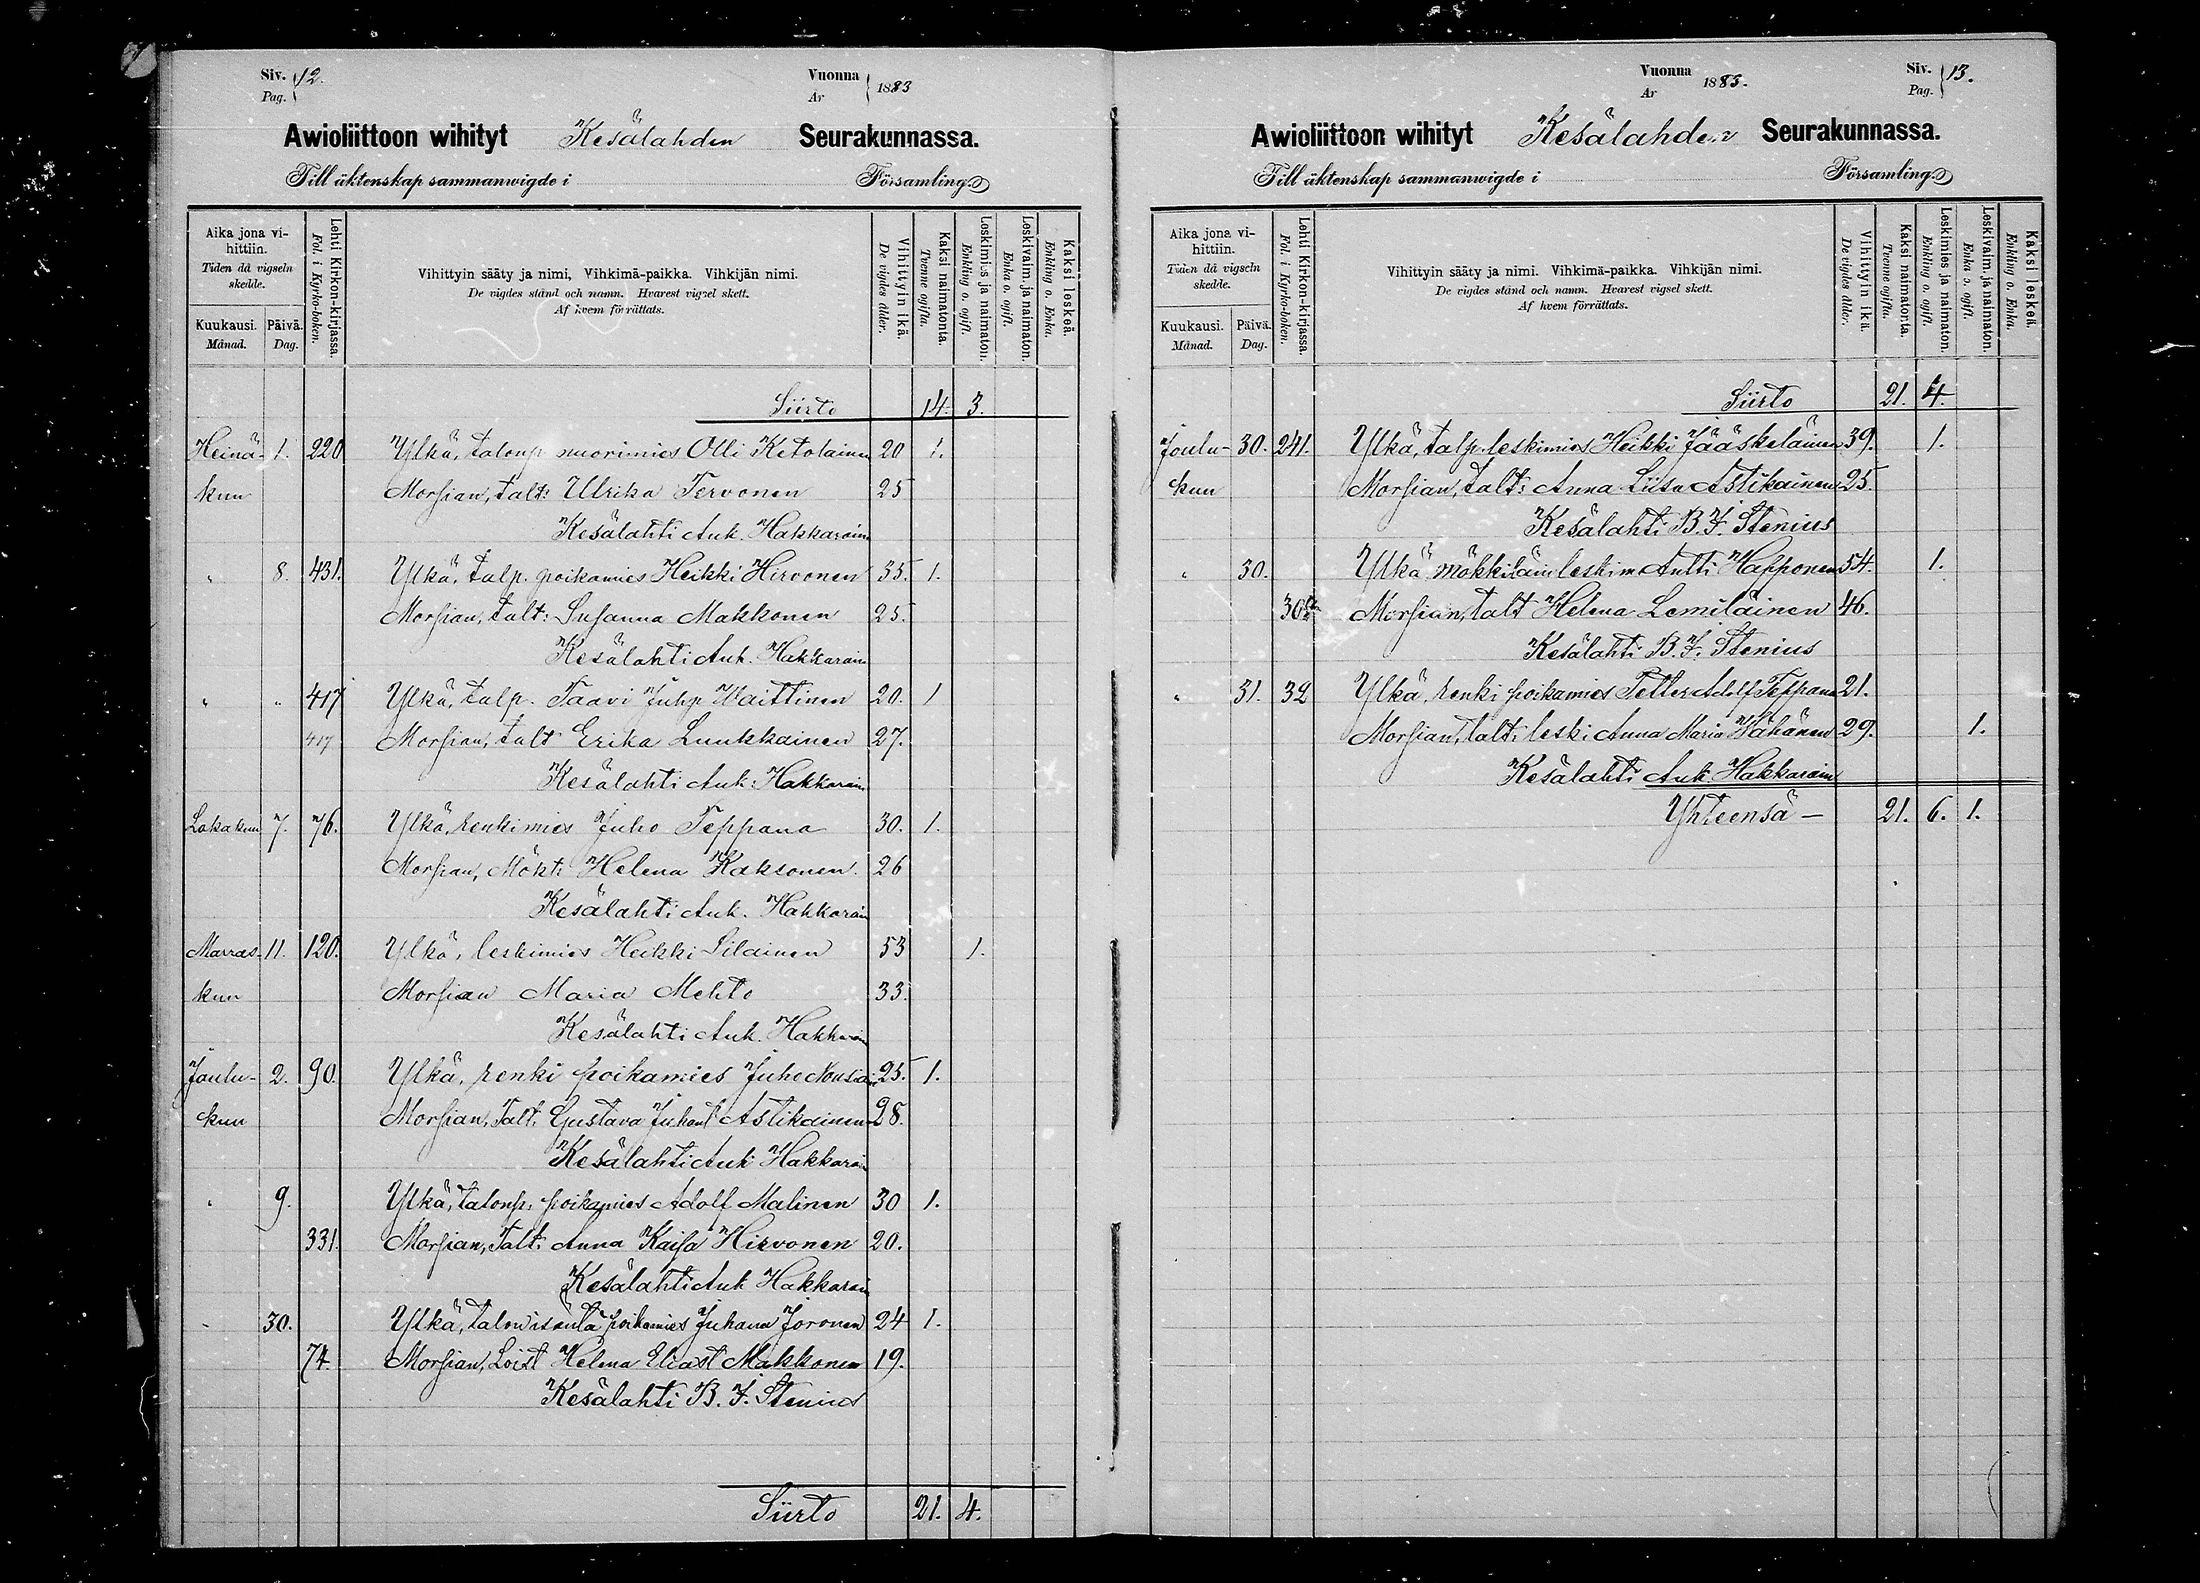 Siv. 12.
Pag.
Vuonna 1883
Ar
Awioliittoon wihityt Kesälahden Seurakunnassa.
Till äktenskap sammanwigde i Församling.
Aika jona vihittiin.
Tiden då vigseln skedde.
Kuukausi. Månad.
Päivä. Dag.
Lehti Kirkon-kirjassa.
Fol. i Kyrko-boken.
Vihittyin sääty ja nimi, Vihkimä-paikka. Vihkijän nimi.
De vigdes stånd och namn. Hvarest vigsel skett.
Af hvem förrättats.
Vihittyin ikä.
De vigdes ålder.
Kaksi naimatonta.
Tvenne ogifta.
Leskimies ja naimaton.
Enkling o. ogift.
Leskivaim. ja naimaton.
Enka o. ogift.
Kaksi leskeä.
Enkling o. Enka.
Siirto 14. 3.
Heinä- 1. 220 Ylkä, talonp nuorimies Olli Ketolainen 20 1.
kun Morsian, talt: Ulrika Tervonen 25
Kesälahti Auk. Hakkarain
" 8. 431. Ylkä, talp. poikamies Heikki Hirvonen 35. 1.
Morsian, talt: Susanna Makkonen 25.
Kesälahti Auk. Hakkarain
" " 417 Ylkä, talp. Taavi Juhp Waittinen 20. 1
417 Morsian, talt Erika Luukkainen 27.
Kesälahti Auk: Hakkarain
Lokakun 7. 76. Ylkä, renkimies Juho Teppana 30. 1.
Morsian, Mökt: Helena Kaksonen. 26
Kesälahti Auk. Hakkarain
Marras- 11. 120. Ylkä, leskimies Heikki Silainen 53 1.
kun Morsian Maria Mehto 33.
Kesälahti Auk. Hakkarain
Joulu- 2. 90. Ylkä, renki poikamies Juho Nousiain 25. 1.
kun Morsian, Talt: Gustava Juhant Astikainen 28.
Kesälahti Auk Hakkarain
" 9. Ylkä, talonp: poikamies Adolf Malinen 30 1.
331. Morsian, Talt: Anna Kaisa Hirvonen 20.
Kesälahti Auk Hakkarain
" 30. Ylkä, talonisäntä poikamies Juhana Joronen 24 1.
74. Morsian, Loist Helena Eliast Makkonen 19.
Kesälahti B. F. Stenius
Siirto 21. 4.
Vuonna 1883.
Ar
Siv. 13.
Pag.
Awioliittoon wihityt Kesälahden Seurakunnassa.
Till äktenskap sammanwigde i Församling.
Aika jona vihittiin.
Tiden då vigseln skedde.
Kuukausi. Månad.
Päivä. Dag.
Lehti Kirkon-kirjassa.
Fol. i Kyrko-boken.
Vihittyin sääty ja nimi. Vihkimä-paikka. Vihkijän nimi.
De vigdes stånd och namn. Hvarest vigsel skett.
Af hvem förrättats.
Vihittyin ikä.
De vigdes ålder.
Kaksi naimatonta.
Tvenne ogifta.
Leskimies ja naimaton.
Enkling o. ogift.
Leskivaim. ja naimaton.
Enka o. ogift.
Kaksi leskeä.
Enkling o. Enka.
Siirto 21. 4.
Joulu- 30. 241. Ylkä, talp. leskimies Heikki Jääskeläinen 39. 1.
kun Morsian, talt: Anna Liisa Astikainen 25.
Kesälahti B. F. Stenius
" 30. Ylkä mökkiläin leskim Antti Happonen 54. 1.
Morsian, talt Helena Lemiläinen 46.
Kesälahti B. F. Stenius
" 31. 32 Ylkä, renki poikamies Petter Adolf Teppana 21.
Morsian, talt: leski Anna Maria Wähänen 29. 1.
Kesälahti Auk Hakkarain
Yhteensä — 21. 6. 1.